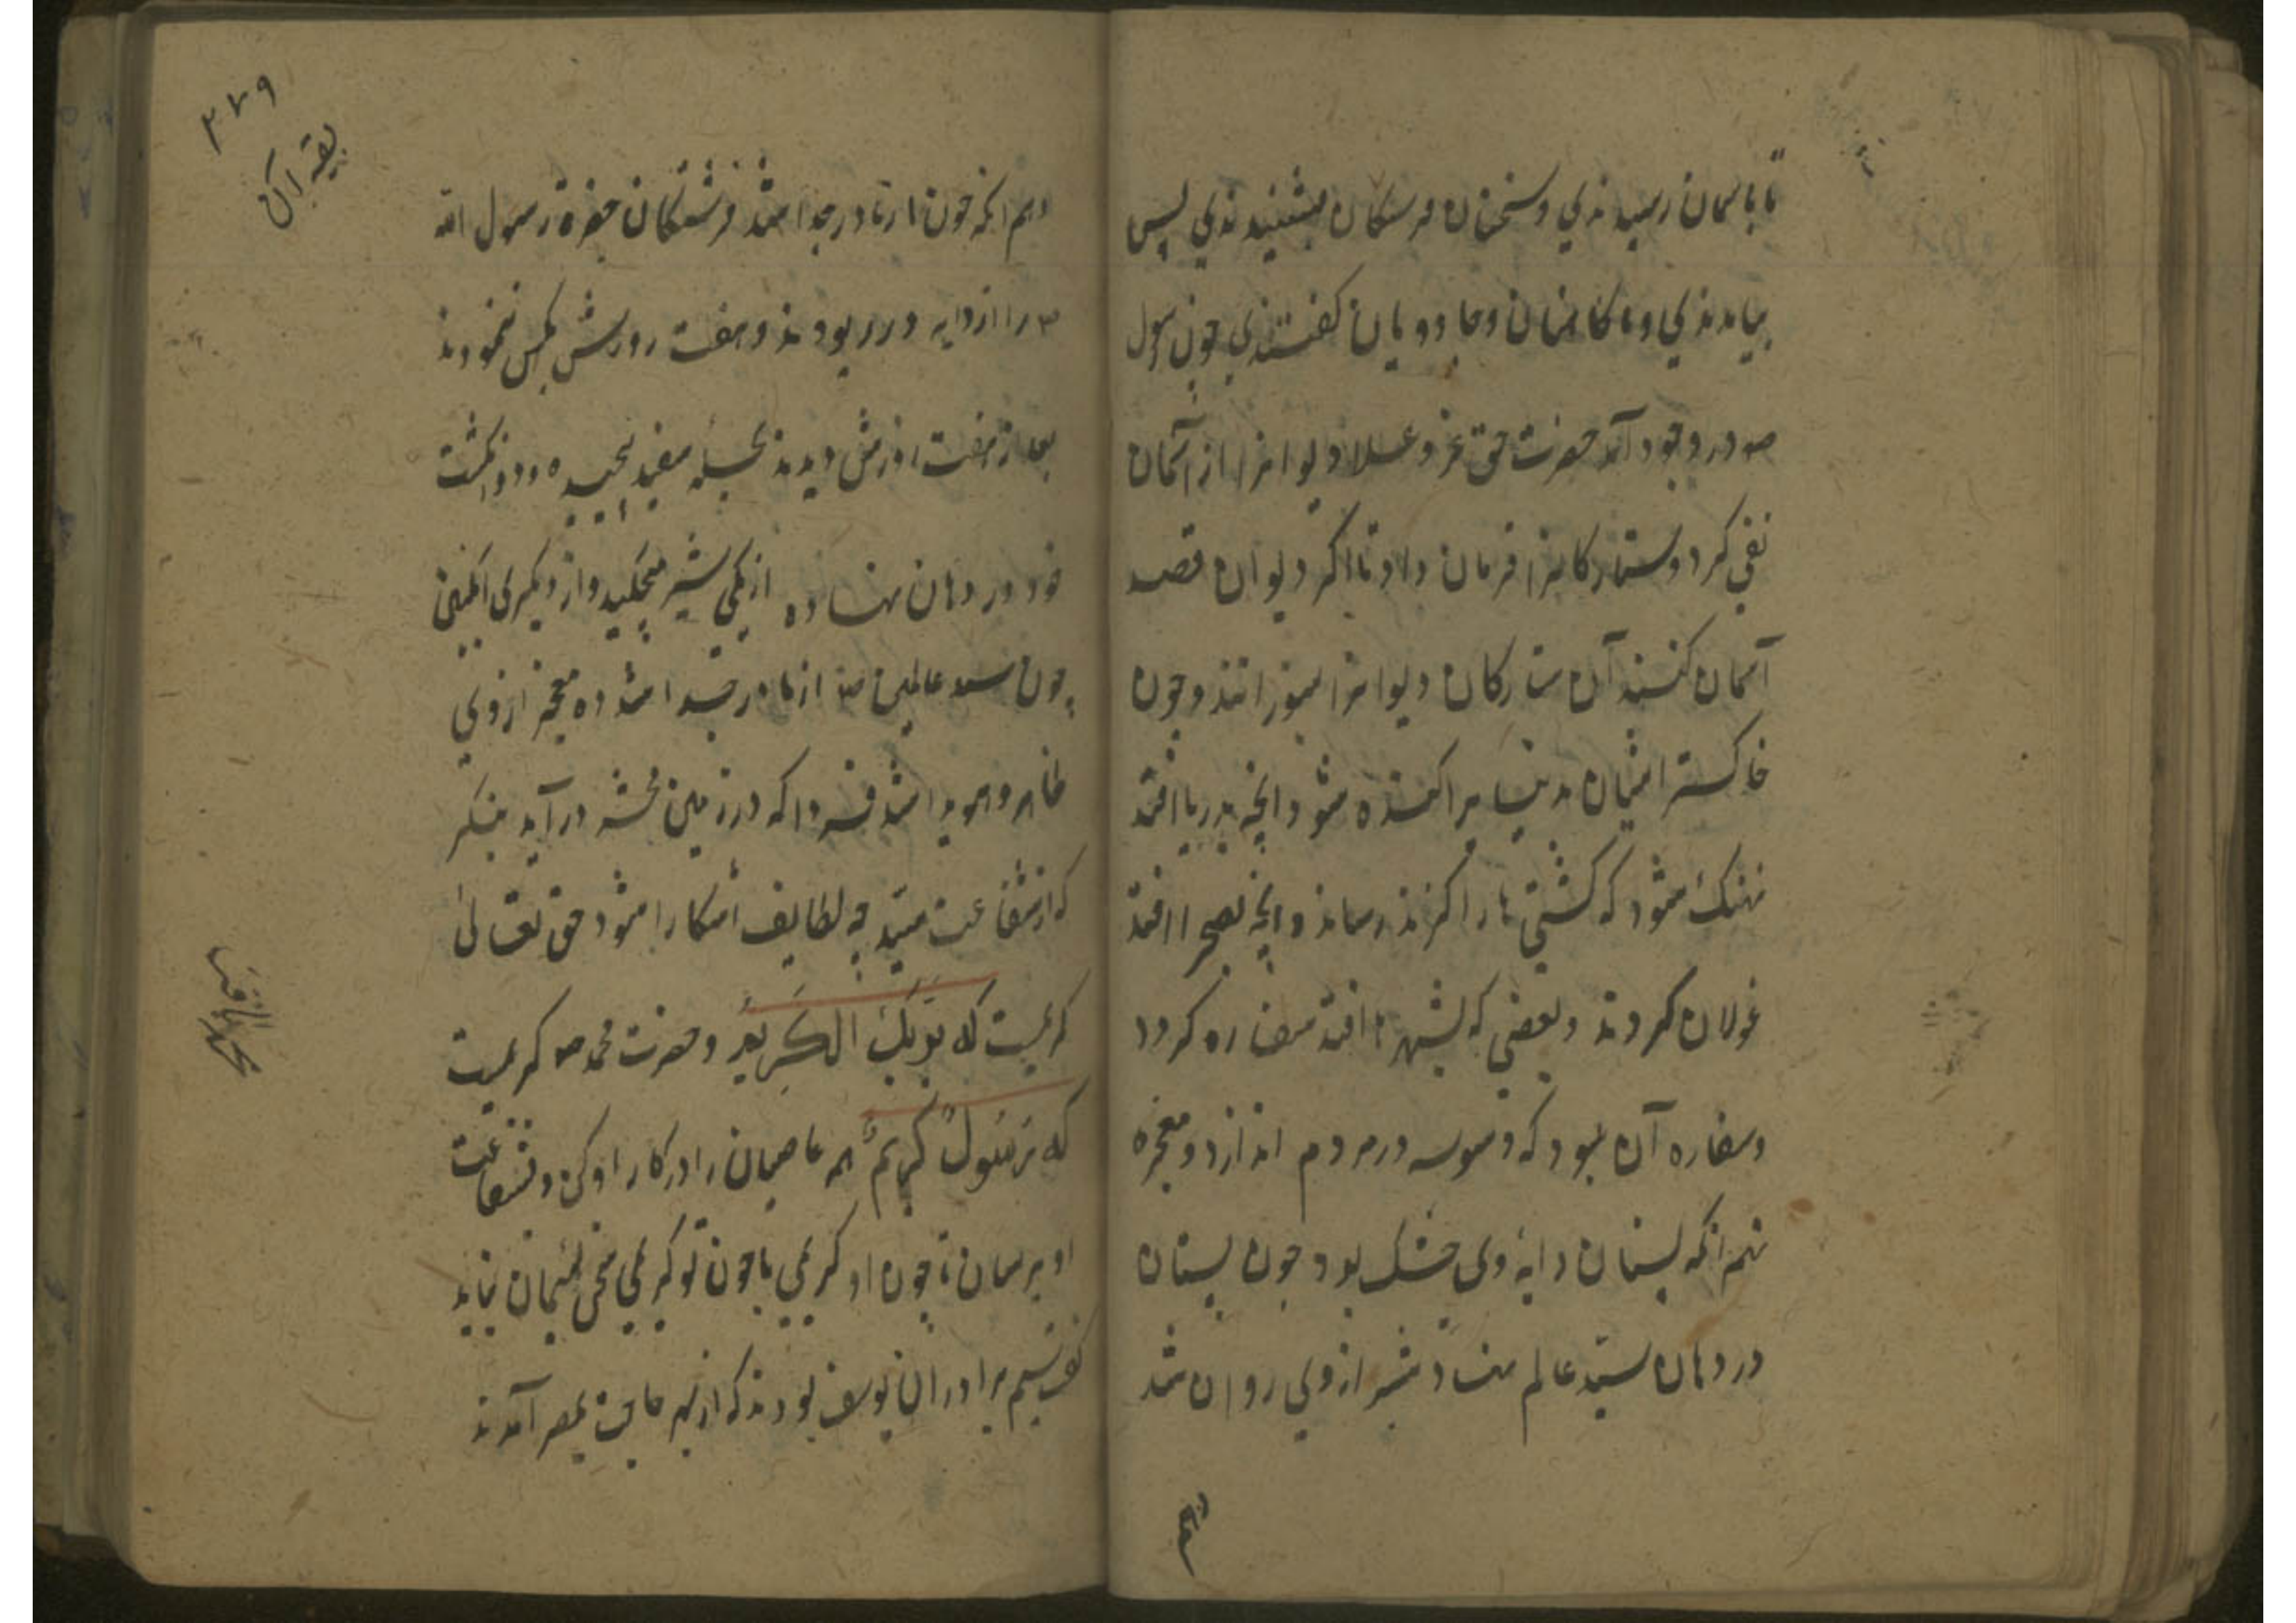 تا باسمان رسیدندی و سخنان فرستکان بشنیدندی پس
بیامدندی و با کاهنان و جادویان کفتندی چون رسول
صه در وجود آمد حضرت حق عز و علا دیوانرا از آسمان
نفی کرد و ستارکانرا فرمان داد تا اکر دیوان قصد
آسمان کنند آن ستارکان دیوانرا بسوزانند و چون
خاکستر ایشان بدنیا پراکنده شود انچه بدریا افتد
نهنک شود که کشتی ها را کزند رساند و انچه بصحرا افتد
غولان کردند و بعضی که بشهرها افتد سفاره کردد
و سفاره آن بود که وسوسه در مردم اندازد و معجزه
نهم انکه پستان دایهٔ وی خشک بود چون پستان
در دهان سیّد عالم نهاد شیر از وی روان شد
دهم
۳۷۹
بقیه آن
دهم انکه چون از مادر جدا شد فرشتکان حضرة رسول الله
صه را از دایه در ربودند و هفت روزش بکس ننمودند
بعد از هفت روزش دیدند بجامه سفید پیچیده و دو انکشت
خود در دهان نهاده از یکی شیر میچکید و از دیکری انکبین
چون سید عالمین صه از مادر جدا شد ده معجز از وی
ظاهر و هویدا شد فردا که در زمین محشر درآید بنکر
که از شفاعت سیّد چه لطایف آشکارا شود حق تعالی
کریمست که بِرَبِّكَ الكَرِيمِ و حضرت محمد صه کریمست
که رَسُولٌ كَرِيمٌ همه عاصیان را در کار او کن و شفاعت
او برسان تا چون او کریمی با چون تو کریمی سخن لئیمان نیاید
نه برادران یوسف بودند که از بهر حاجت بمصر آمدند